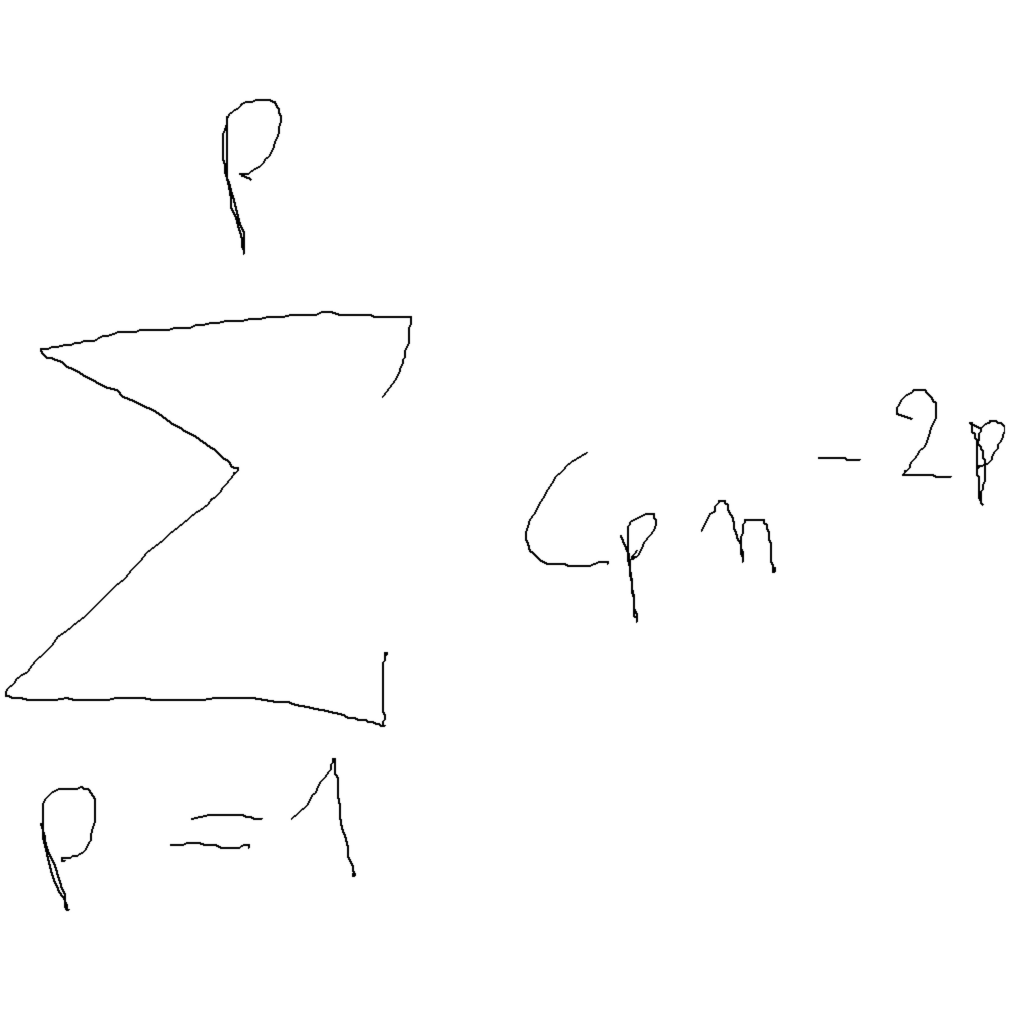 \sum_{p=1}^{p} c_{p} n^{-2p}